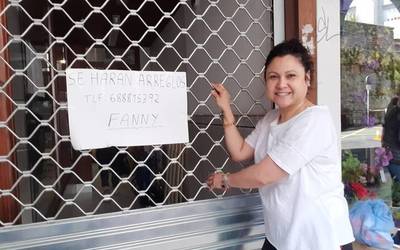 SE HARAN ARREGLOS
TLF. 688815392
FANNY